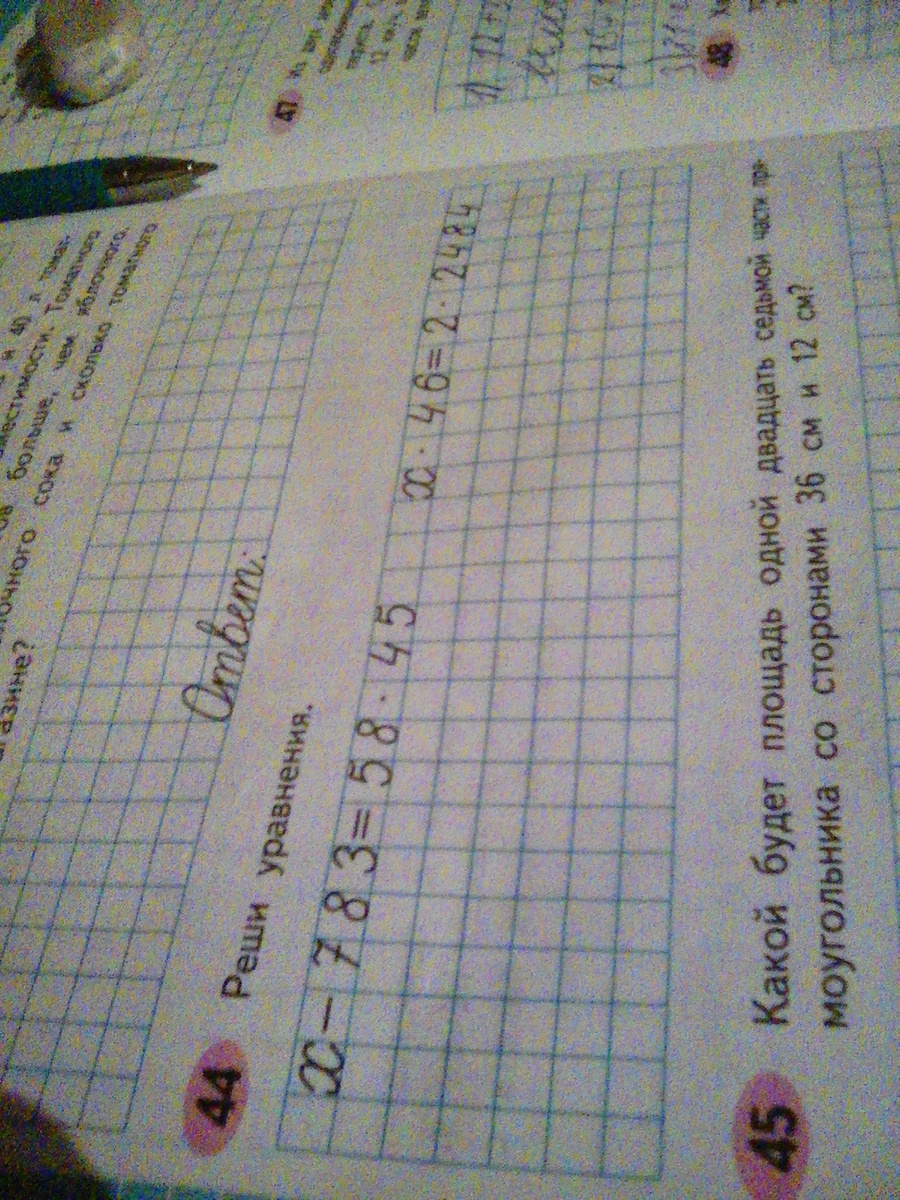 л томат-
вместимости. Томатного
больше, чем яблочного.
сока и сколько томатного
Ответ:
44 Реши уравнения.
x − 783 = 58 · 45 x · 46 = 2 · 2484
45 Какой будет площадь одной двадцать седьмой части пря-
моугольника со сторонами 36 см и 12 см?
47
48